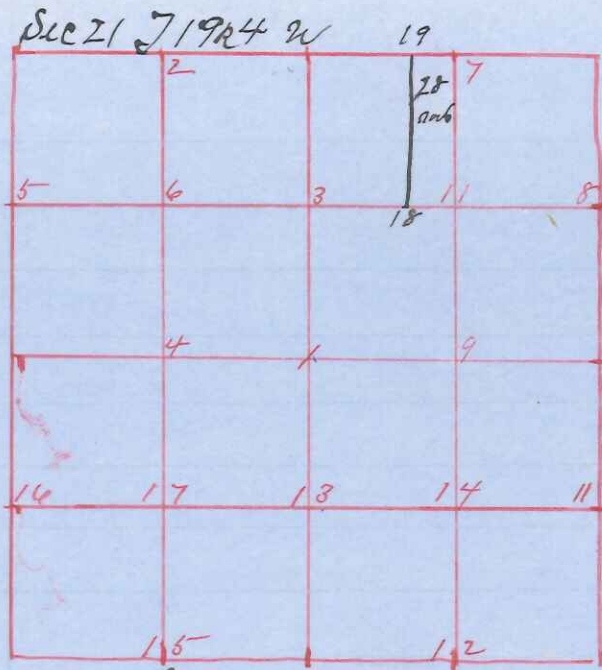 Sec 21 T19R4 W
19
2 7
28
5 6 3 11 8
18
4 1 9
16 17 13 14 11
15 12